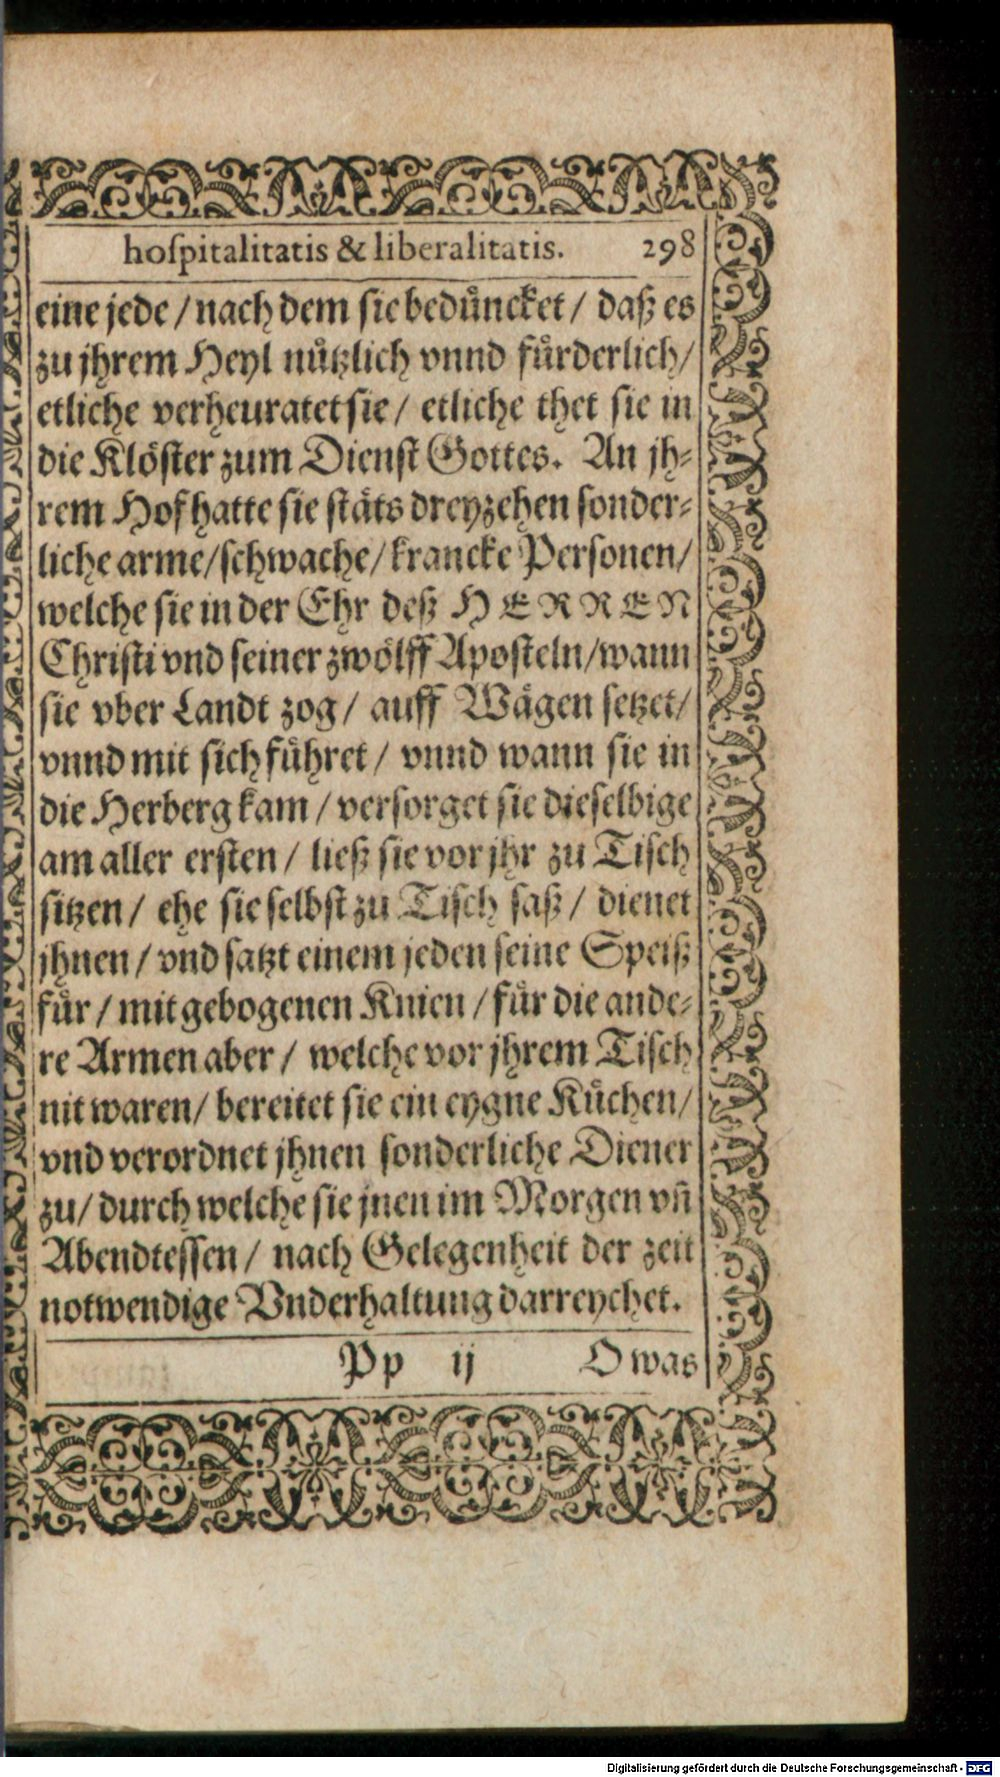 hoſpitalitatis & liberalitatis. 298
eine jede / nach dem ſie beduͤncket / daß es
zu jhrem Heyl nuͤtzlich vnnd fuͤrderlich /
etliche verheuratet ſie / etliche thet ſie in
die Kloͤſter zum Dienſt Gottes. An jh⸗
rem Hof hatte ſie ſtaͤts dreyzehen ſonder⸗
liche arme / ſchwache / krancke Perſonen /
welche ſie in der Ehr deß HERREN
Chriſti vnd ſeiner zwoͤlff Apoſteln / wann
ſie vber Landt zog / auff Waͤgen ſetzet /
vnnd mit ſich fuͤhret / vnnd wann ſie in
die Herberg kam / verſorget ſie dieſelbige
am aller erſten / ließ ſie vor jhr zu Tiſch
ſitzen / ehe ſie ſelbſt zu Tiſch ſaß / dienet
jhnen / vnd ſatzt einem jeden ſeine Speiß
fuͤr / mit gebogenen Knien / fuͤr die ande⸗
re Armen aber / welche vor jhrem Tiſch
nit waren / bereitet ſie ein eygne Kuͤchen /
vnd verordnet jhnen ſonderliche Diener
zu / durch welche ſie jnen im Morgen vn̄
Abendteſſen / nach Gelegenheit der zeit
notwendige Vnderhaltung darreychet.
Pp ij O was
Digitalisierung gefördert durch die Deutsche Forschungsgemeinschaft - DFG